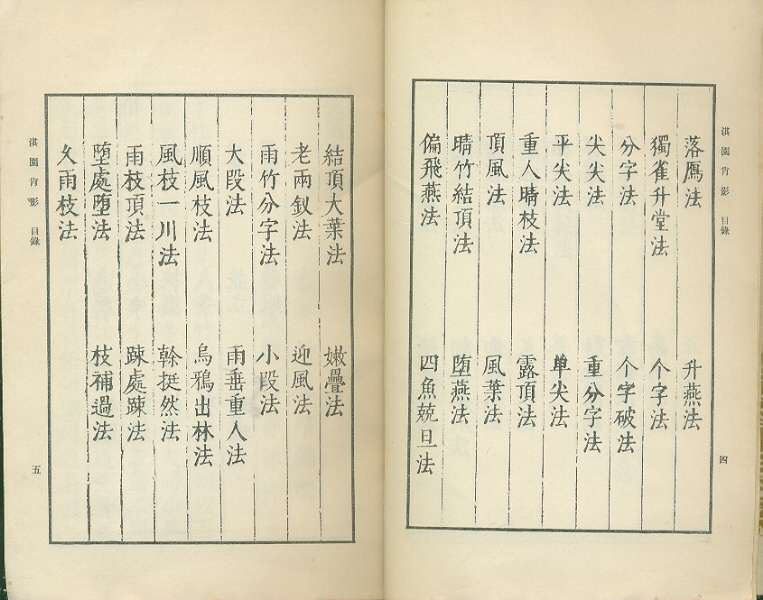 淇園肖影　目錄
四
落鴈法　升燕法
獨雀升堂法　个字法
分字法　个字破法
尖尖法　重分字法
平尖法　单尖法
重人晴枝法　露頂法
頂風法　風葉法
晴竹結頂法　堕燕法
偏飛燕法　四魚兢旦法
結頂大葉法　嫩疊法
老兩釵法　迎風法
雨竹分字法　小段法
大段法　雨垂重人法
順風枝法　烏鴉出林法
風枝一川法　榦挺然法
雨枝頂法　踈處踈法
堕處堕法　枝補過法
久雨枝法
淇園肖影　目錄
五